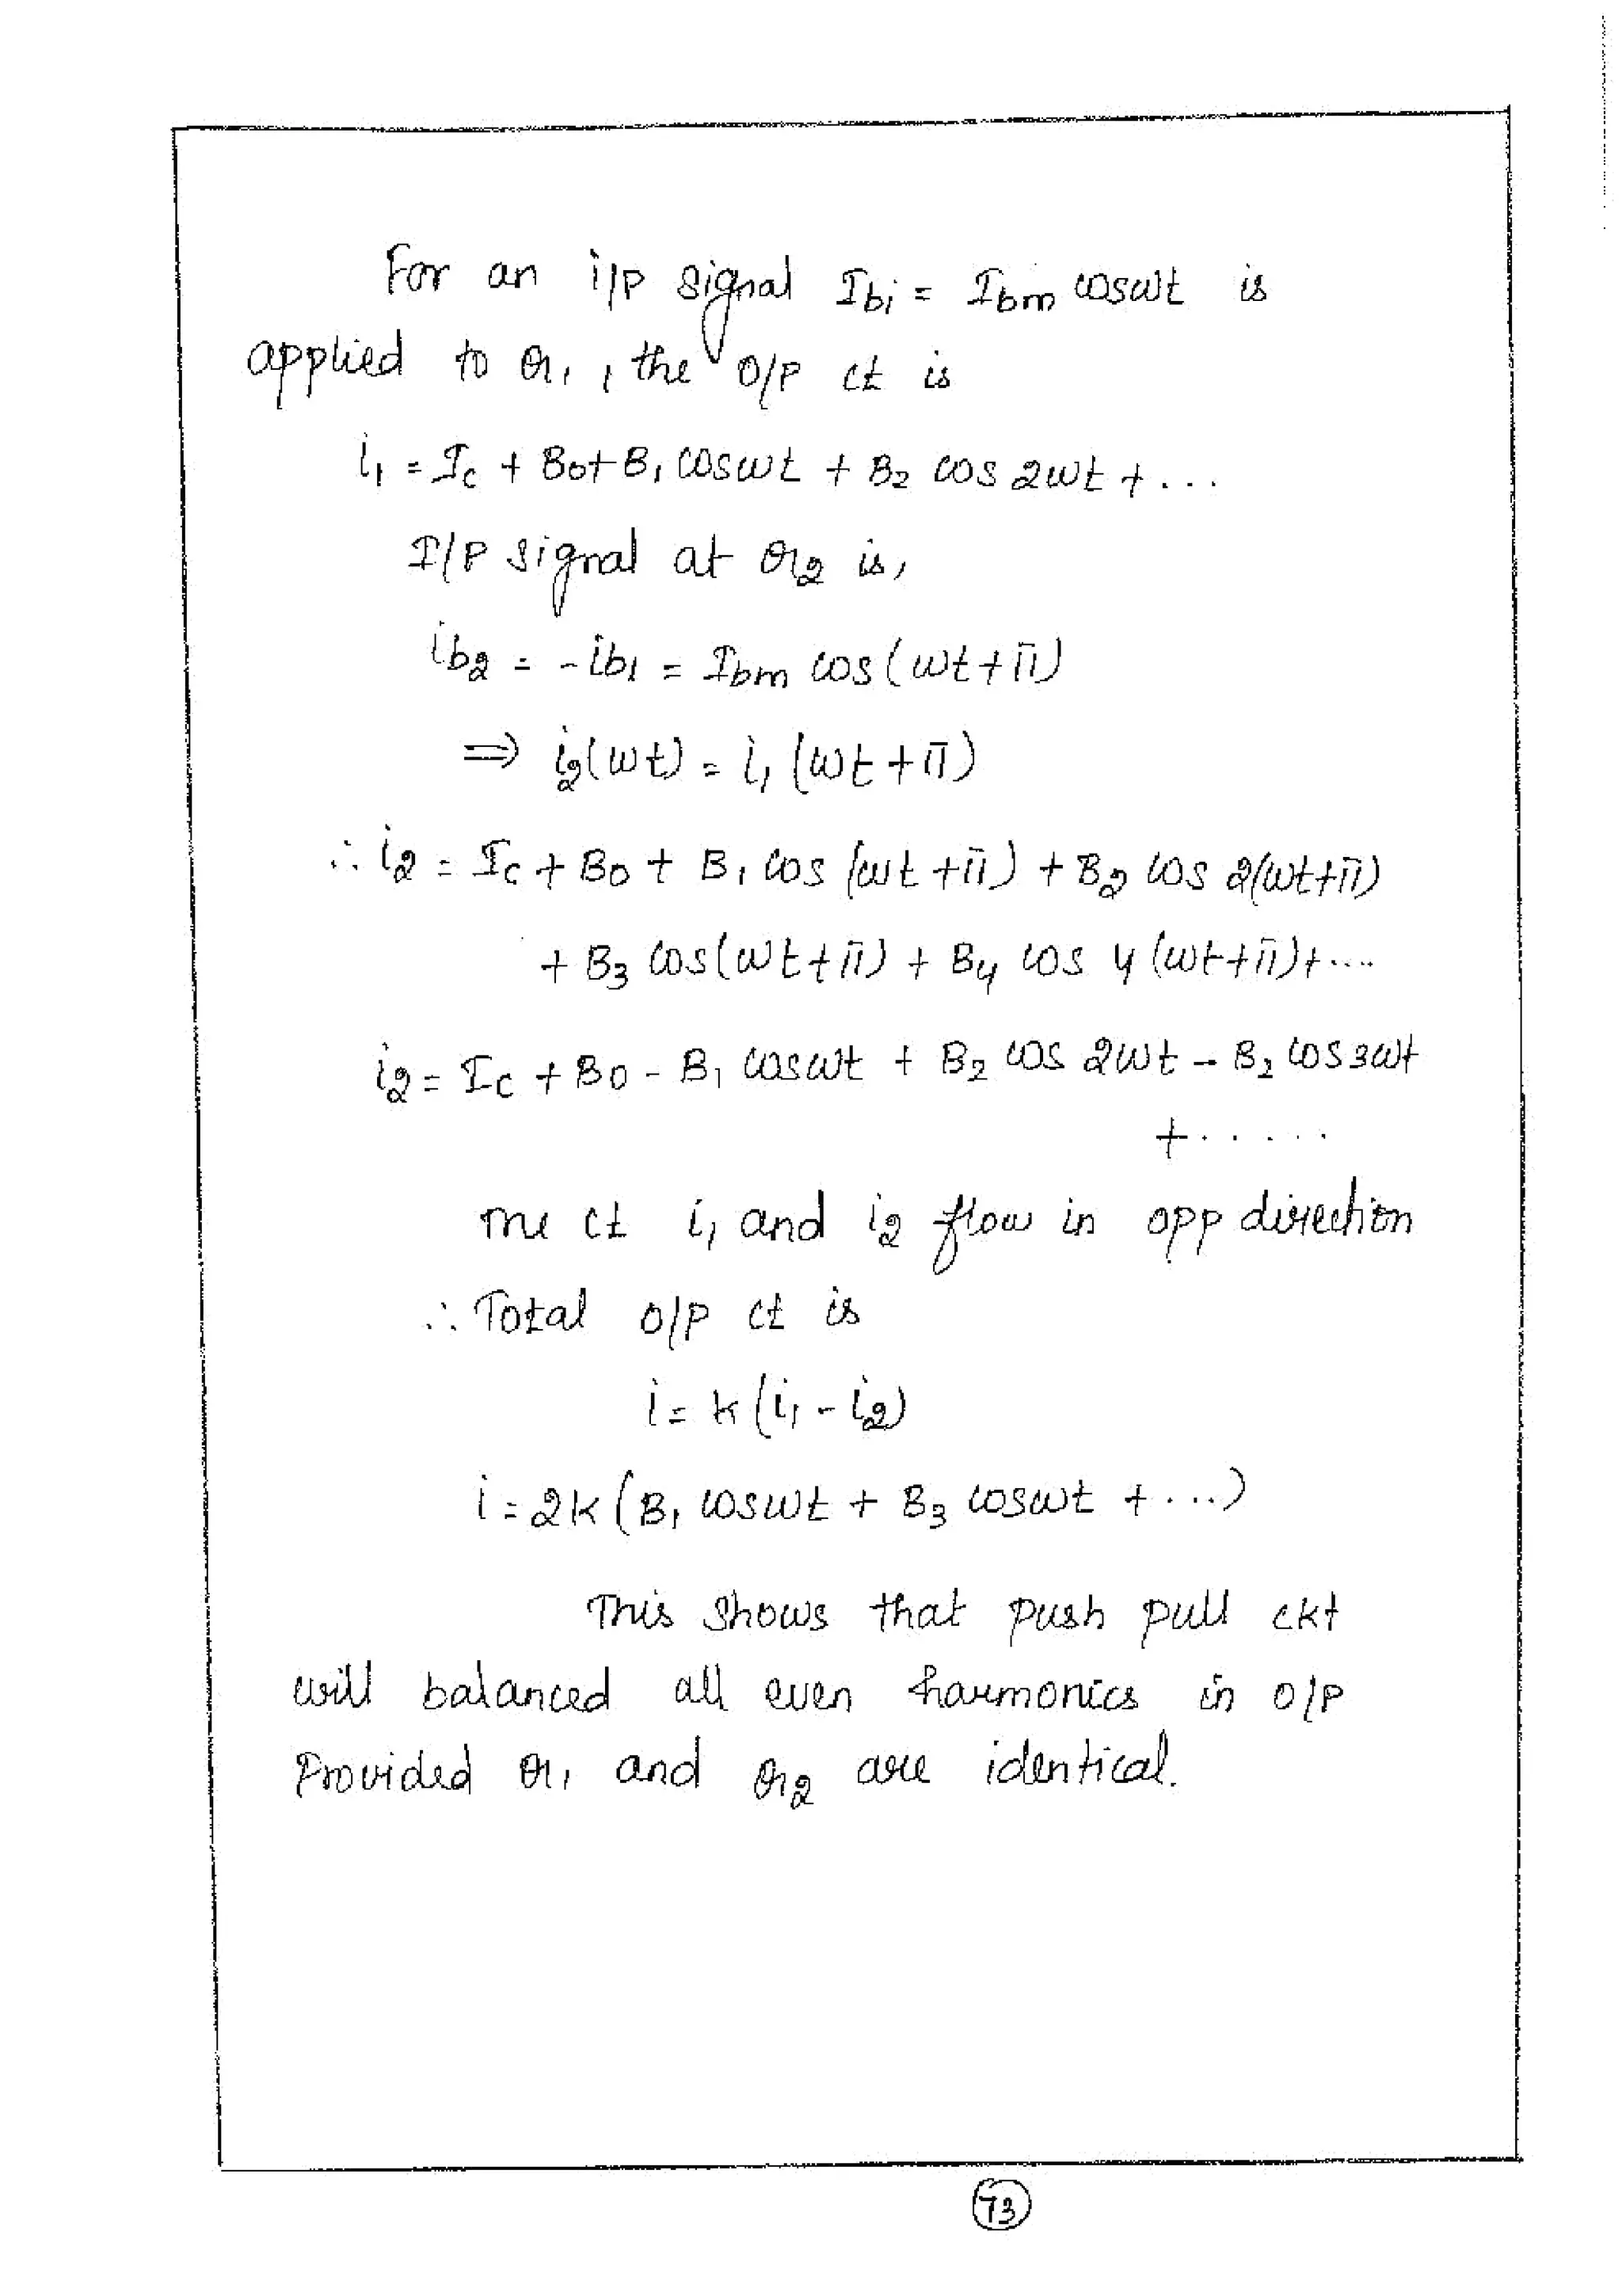 For an i/p signal Ibi = Ibm cosωt is
applied to Q1, the O/P ct is
i1 = Ic + B0 + B1 cosωt + B2 cos 2ωt + ...
I/P signal at Q2 is,
ib2 = -ib1 = Ibm cos(ωt + π)
⇒ i2(ωt) = i1 (ωt + π)
∴ i2 = Ic + B0 + B1 cos (ωt + π) + B2 cos 2(ωt+π)
+ B3 cos(ωt + π) + B4 cos 4 (ωt + π) + ....
i2 = Ic + B0 - B1 cosωt + B2 cos 2ωt - B2 cos 3ωt
+ .....
The ct i1 and i2 flow in opp direction
∴ Total o/p ct is
i = k (i1 - i2)
i = 2k (B1 cosωt + B3 cosωt + ...)
This shows that push pull ckt
will balanced all even harmonics in o/p
Provided Q1 and Q2 are identical.
73